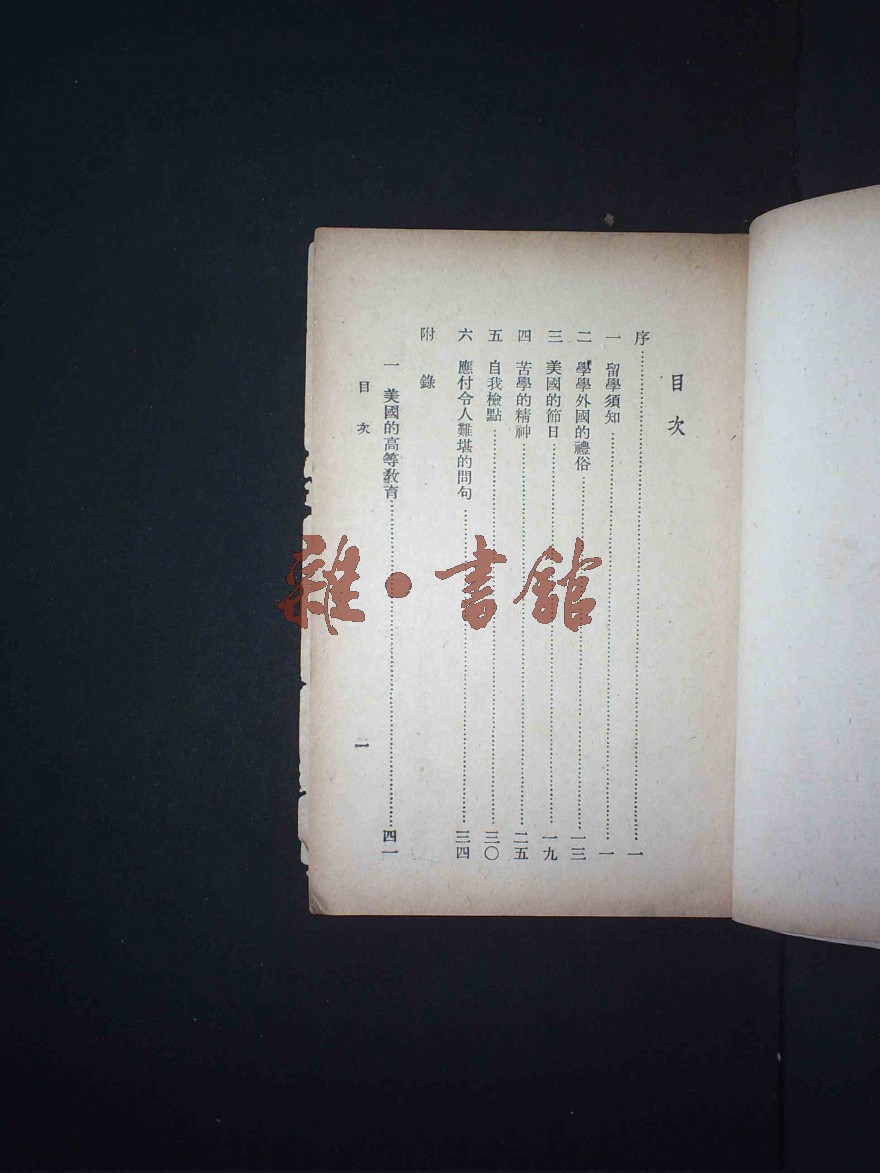 目次
序…………一
一 留學須知…………一
二 學學外國的禮俗…………一三
三 美國的節日…………一九
四 苦學的精神…………二五
五 自我檢點…………三〇
六 應付令人難堪的問句…………三四
附錄
一 美國的高等教育…………四一
目次 一
雜·書館